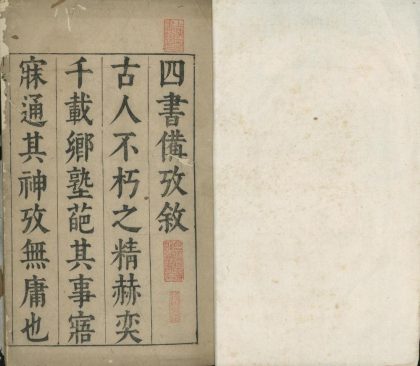 四書備攷敘
古人不朽之精赫奕
千載鄉塾葩其事寤
寐通其神攷無庸也